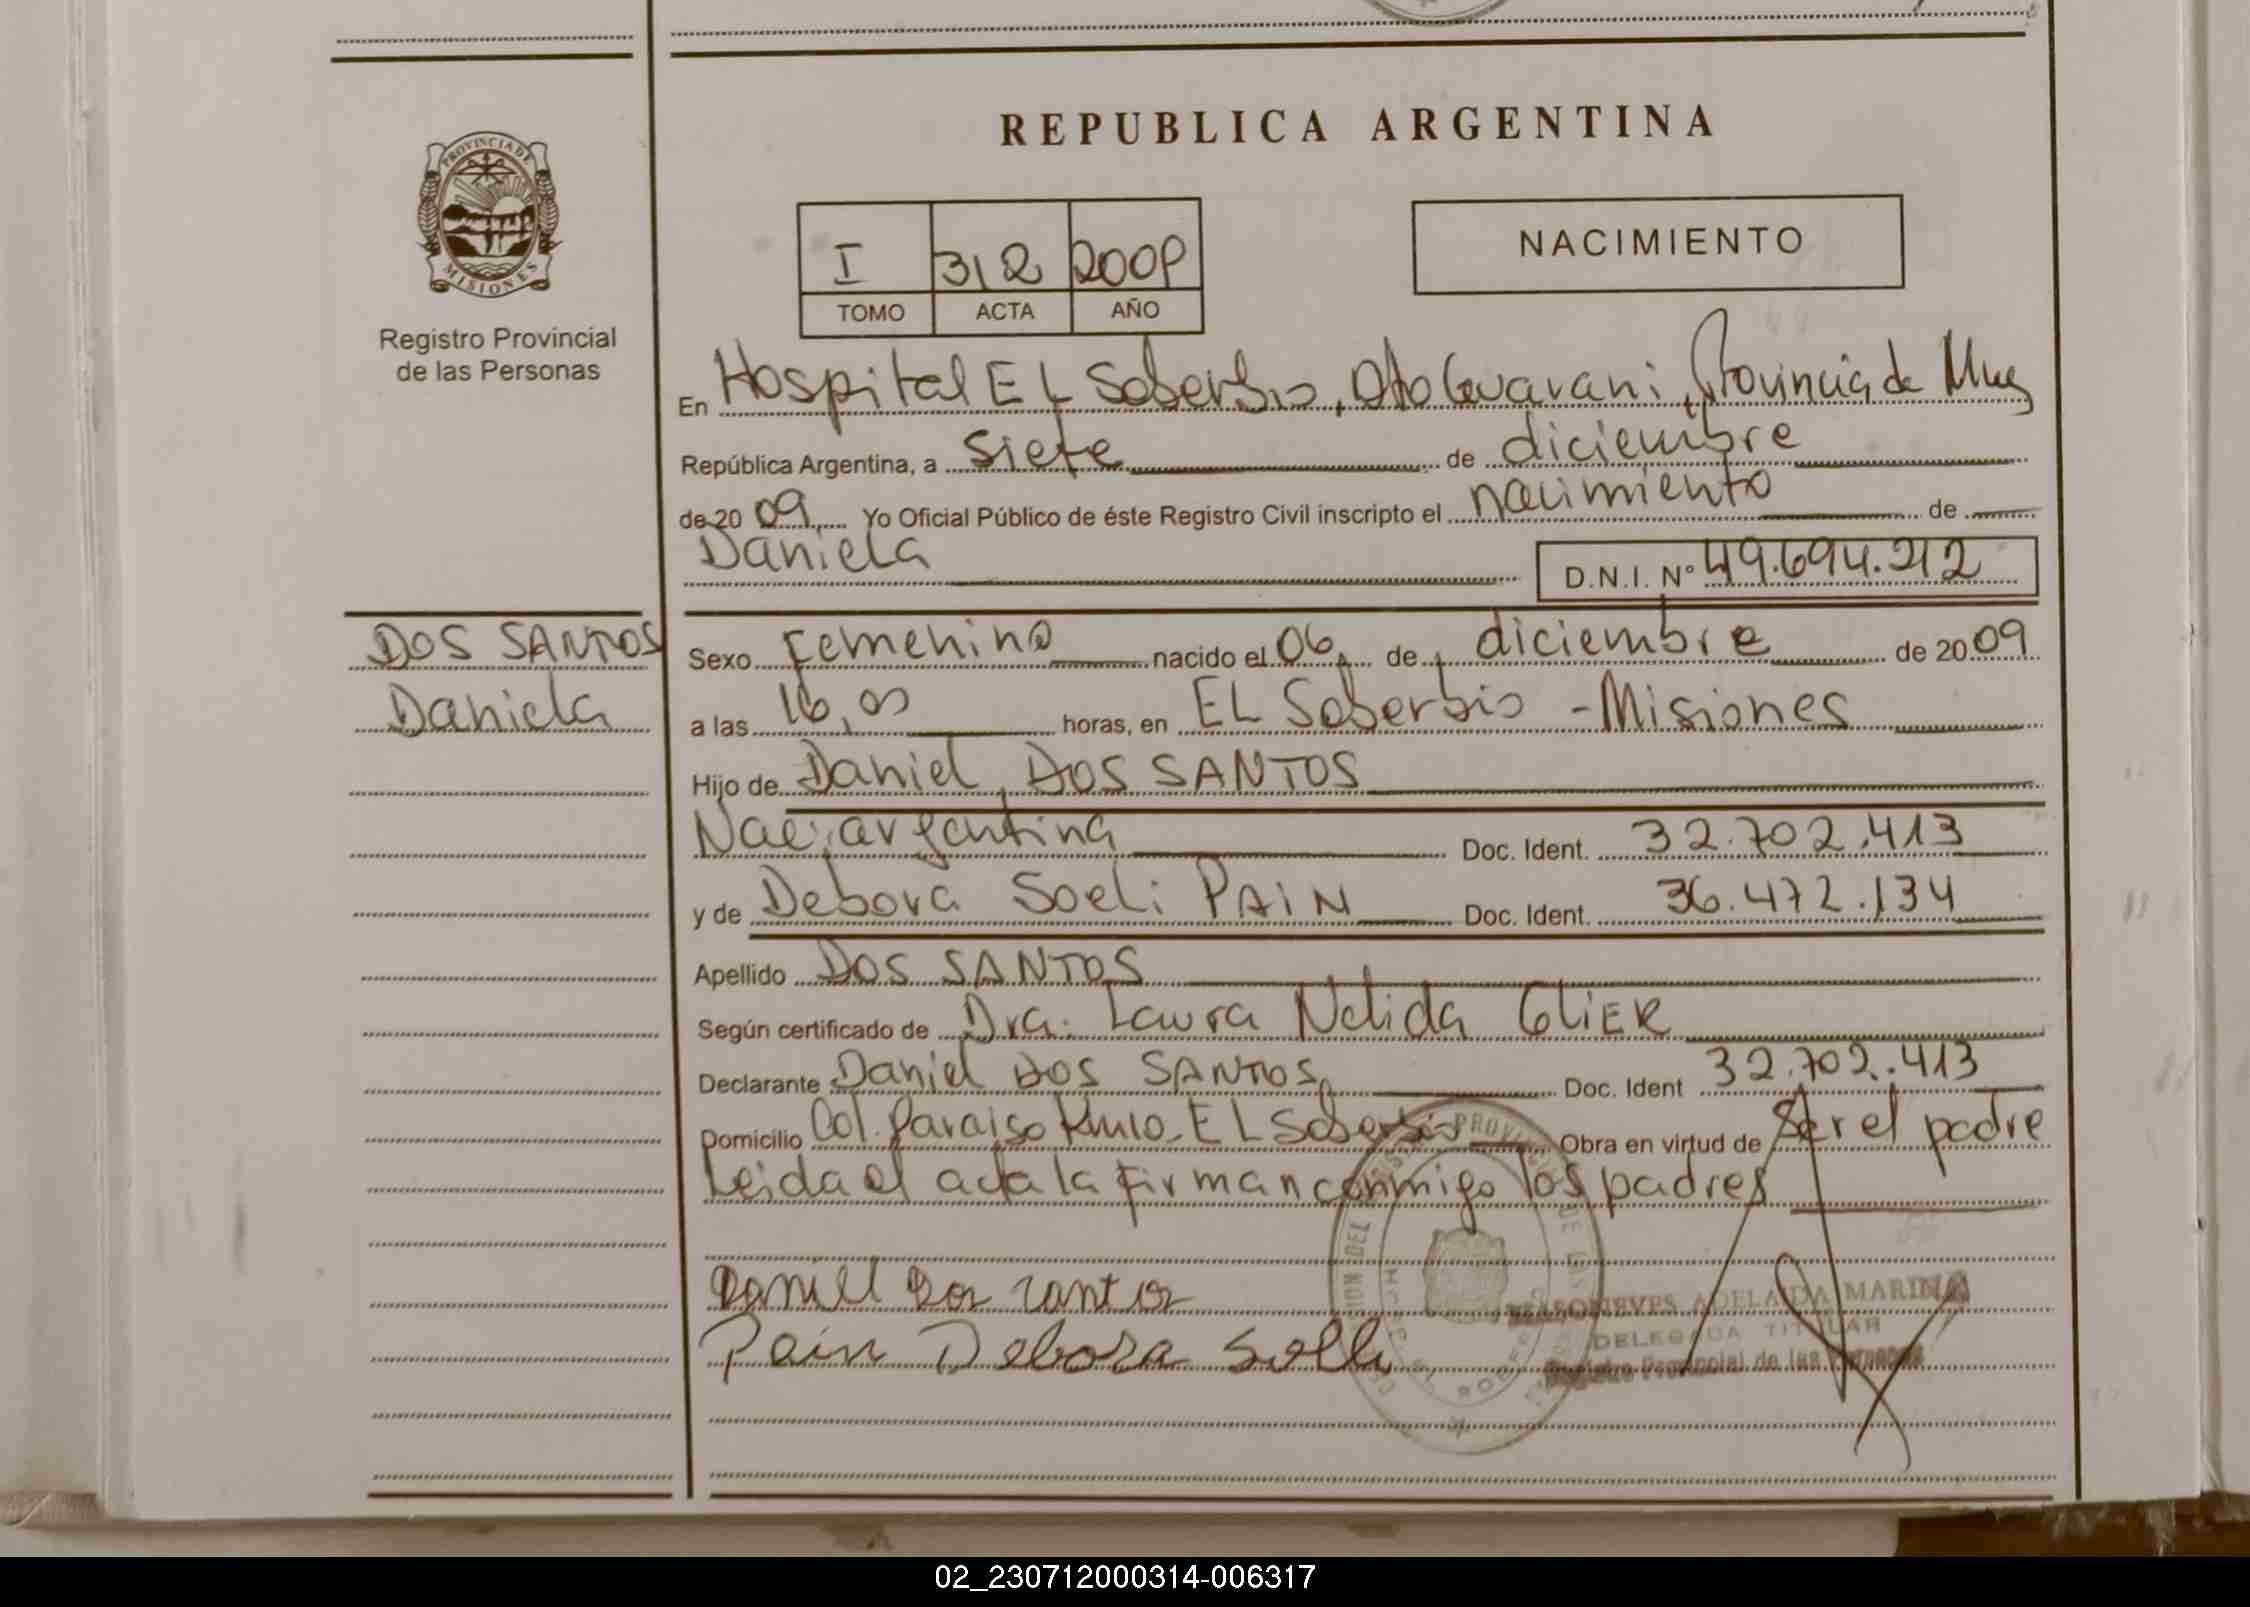 REPUBLICA ARGENTINA
PROVINCIA DE MISIONES
Registro Provincial
de las Personas
I 312 2009
TOMO ACTA AÑO
NACIMIENTO
En Hospital EL Soberbio, Dto Guarani, Provincia de Mnes
República Argentina, a siete de diciembre
de 2009, Yo Oficial Público de éste Registro Civil inscripto el nacimiento de
Daniela D.N.I. Nº 49.694.212
DOS SANTOS
Daniela
Sexo Femenino nacido el 06, de diciembre de 2009
a las 16,00 horas, en EL Soberbio - Misiones
Hijo de Daniel, DOS SANTOS
Nac. argentina Doc. Ident. 32.702.413
y de Debora Soeli PAIN Doc. Ident. 36.472.134
Apellido DOS SANTOS
Según certificado de Dra. Laura Nelida GLIER
Declarante Daniel DOS SANTOS, Doc. Ident 32.702.413
Domicilio Col. Paraiso Km10 - EL Soberbio Obra en virtud de Ser el padre
Leida el acta la firman conmigo los padres
Daniel Dos Santos
Pain Debora Soeli
ADELAIDA MARINA
DELEGADA TITULAR
Registro Provincial de las Personas
02_230712000314-006317